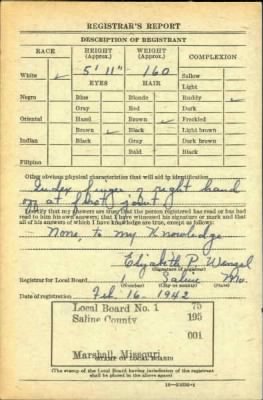 REGISTRAR'S REPORT
DESCRIPTION OF REGISTRANT
RACE HEIGHT (Approx.) WEIGHT (Approx.) COMPLEXION
White ✓ 5' 11" 160 Sallow
EYES HAIR Light
Negro Blue Blonde Ruddy ✓
Gray Red Dark
Oriental Hazel Brown ✓ Freckled
Brown ✓ Black Light brown
Indian Black Gray Dark brown
Bald Black
Filipino
Other obvious physical characteristics that will aid in identification
Index finger of right hand
off at first joint.
I certify that my answers are true; that the person registered has read or has had
read to him his own answers; that I have witnessed his signature or mark and that
all of his answers of which I have knowledge are true, except as follows:
None, to my knowledge
Elizabeth P. Wengel
(Signature of registrar)
Registrar for Local Board 1 Saline Mo.
(Number) (City or county) (State)
Date of registration Feb. 16-1942
Local Board No. 1 75
Saline County 195
001
Marshall, Missouri
(STAMP OF LOCAL BOARD)
(The stamp of the Local Board having jurisdiction of the registrant
shall be placed in the above space)